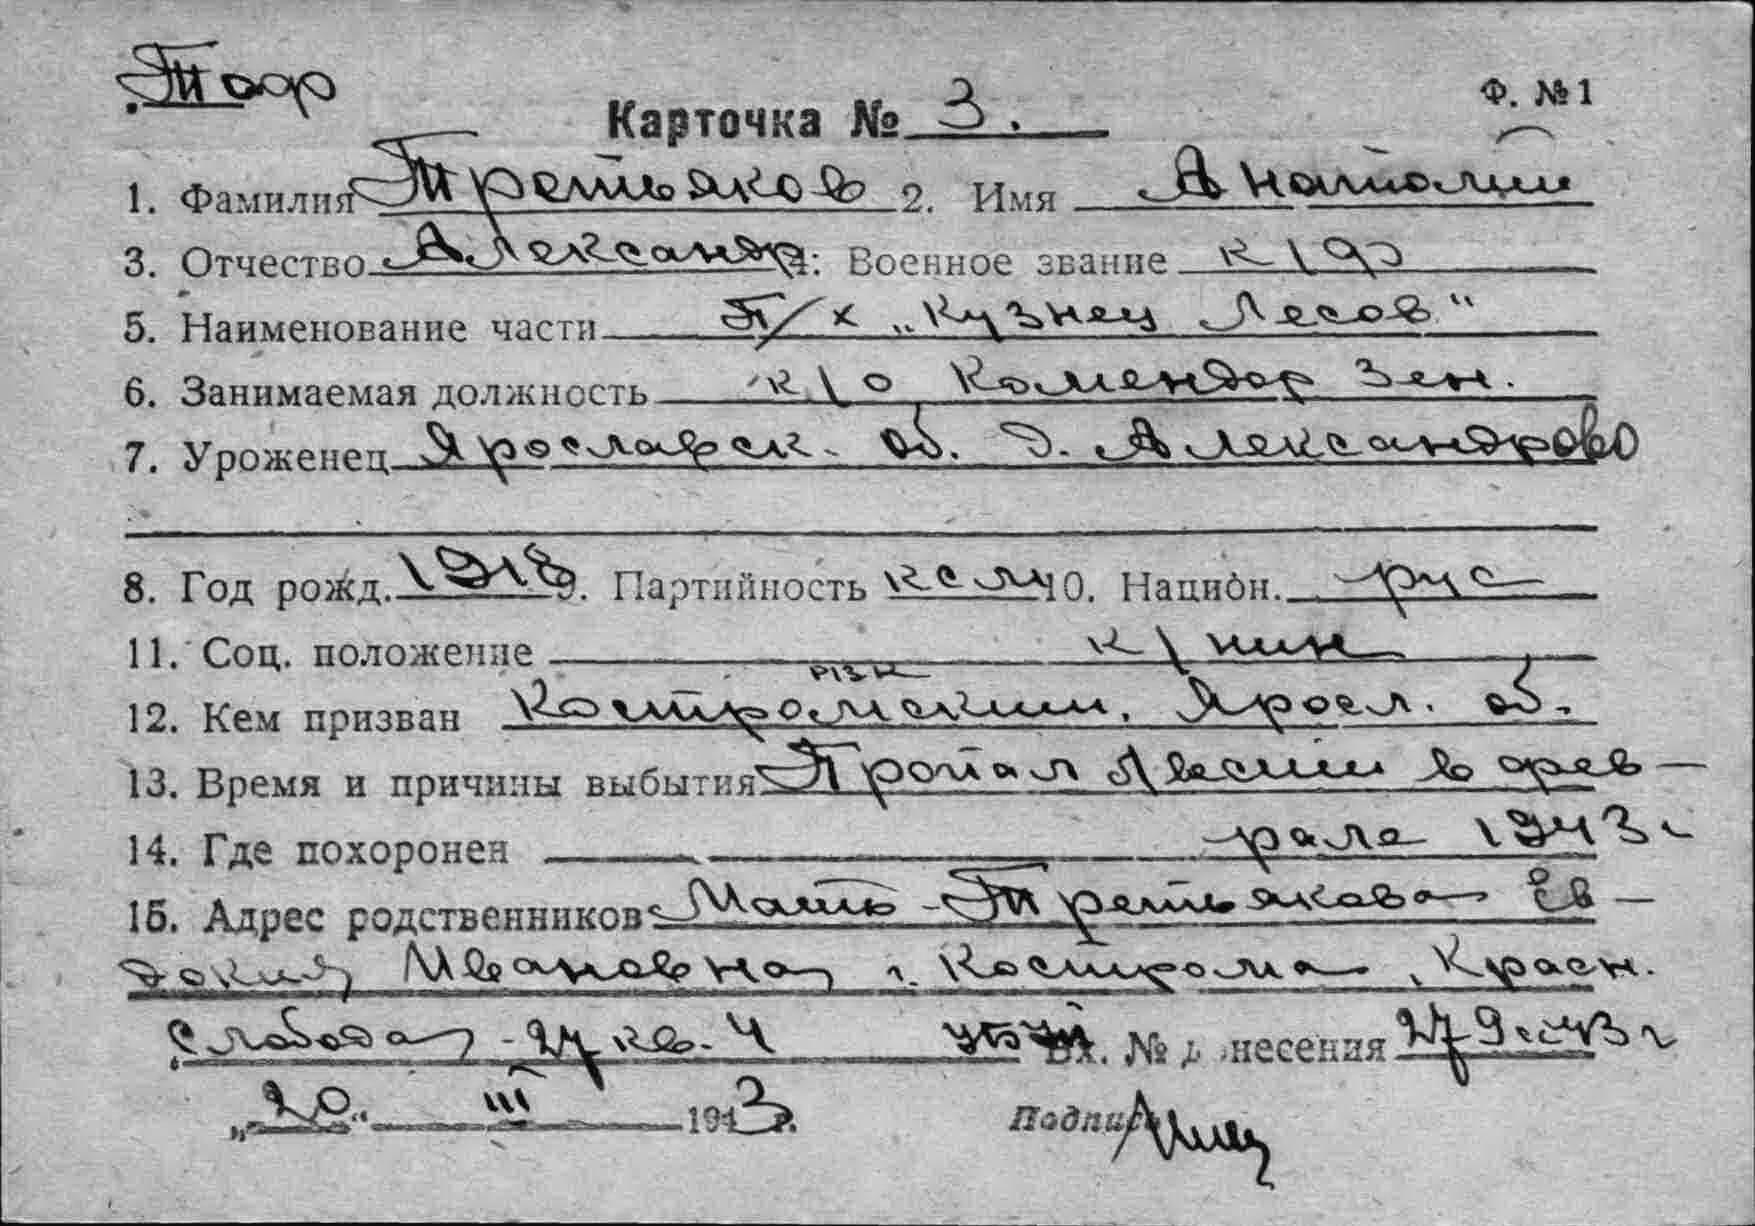 Тоф
Ф. №1
Карточка № 3.
1. Фамилия Третьяков 2. Имя Анатолий
3. Отчество Александр. 4: Военное звание к/ф
5. Наименование части П/х „Кузнец Лесов"
6. Занимаемая должность к/о Комендор Зен.
7. Уроженец Ярославск. об. д. Александрово
8. Год рожд. 1918 9. Партийность ксм 10. Национ. рус
11. Соц. положение к/нин
РВК
12. Кем призван Костромским, Яросл. об.
13. Время и причины выбытия Пропал без вести в фев-
14. Где похоронен рале 1943 г
15. Адрес родственников Мать - Третьякова Ев-
докия Ивановна г. Кострома, Красн.
Слобода - 27 кв. 4 Вх. № донесения 279сс 43 г
„20" III 1943 г.
Подпись